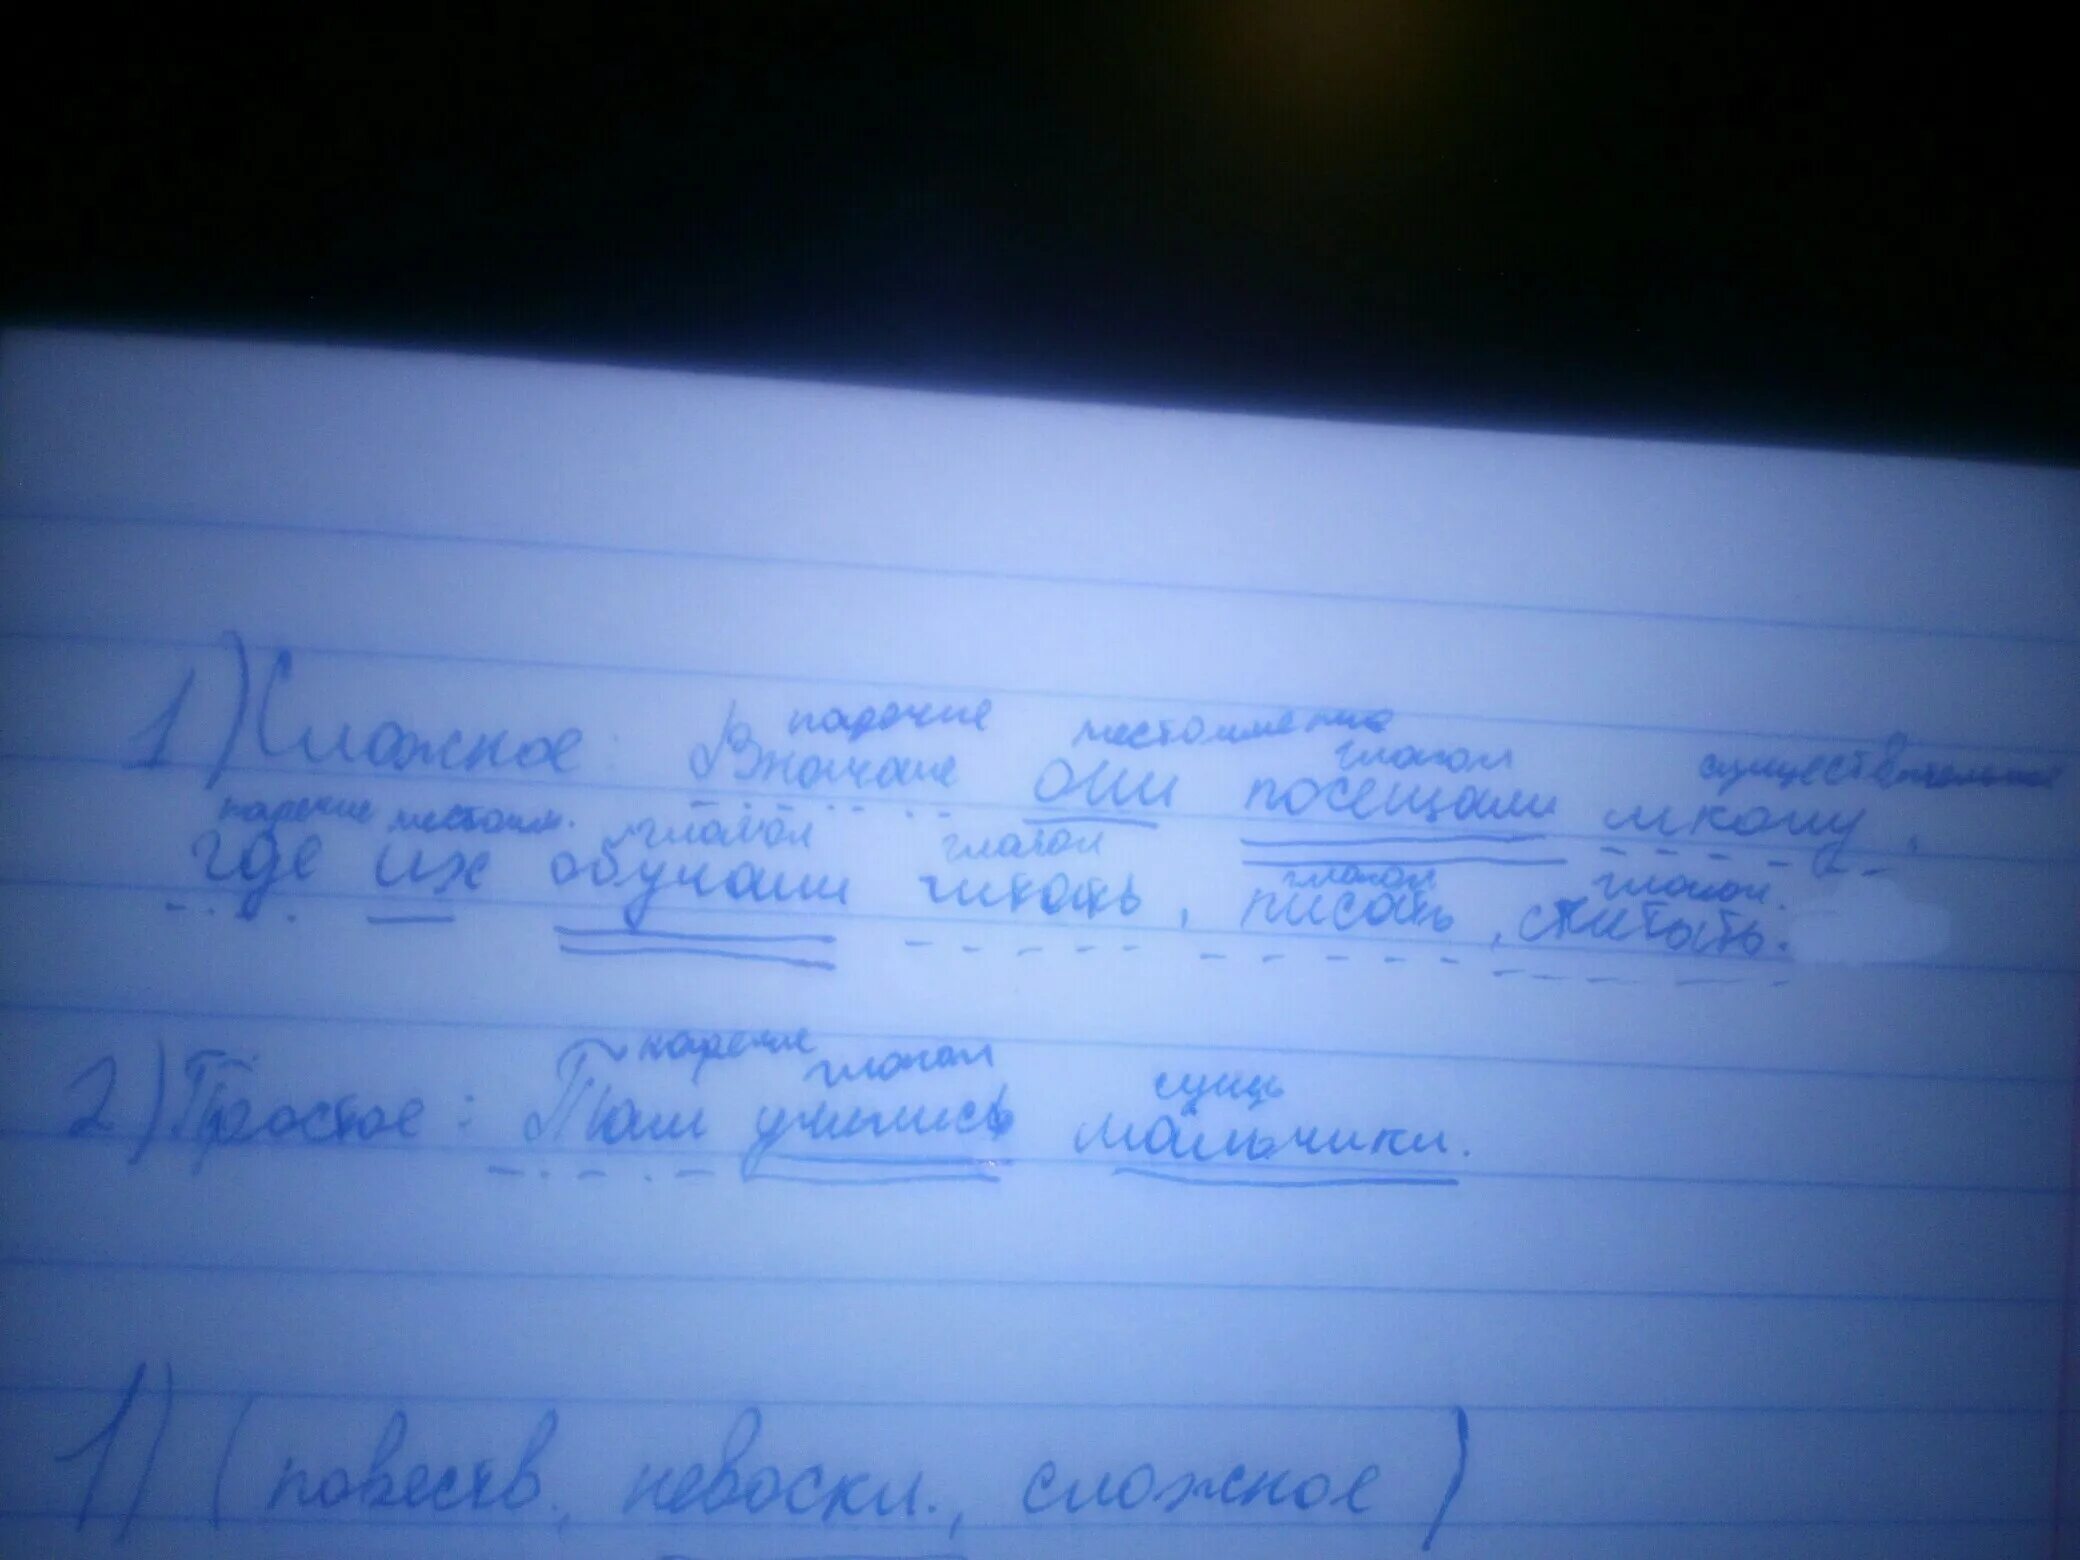 наречие местоимение глагол существительное
1) Сложное: Вначале они посещали школу,
наречие местоим. глагол глагол глагол глагол.
где их обучали читать, писать, считать.
наречие глагол сущ
2) Простое: Там учились мальчики.
1) (повеств., невоскл., сложное)